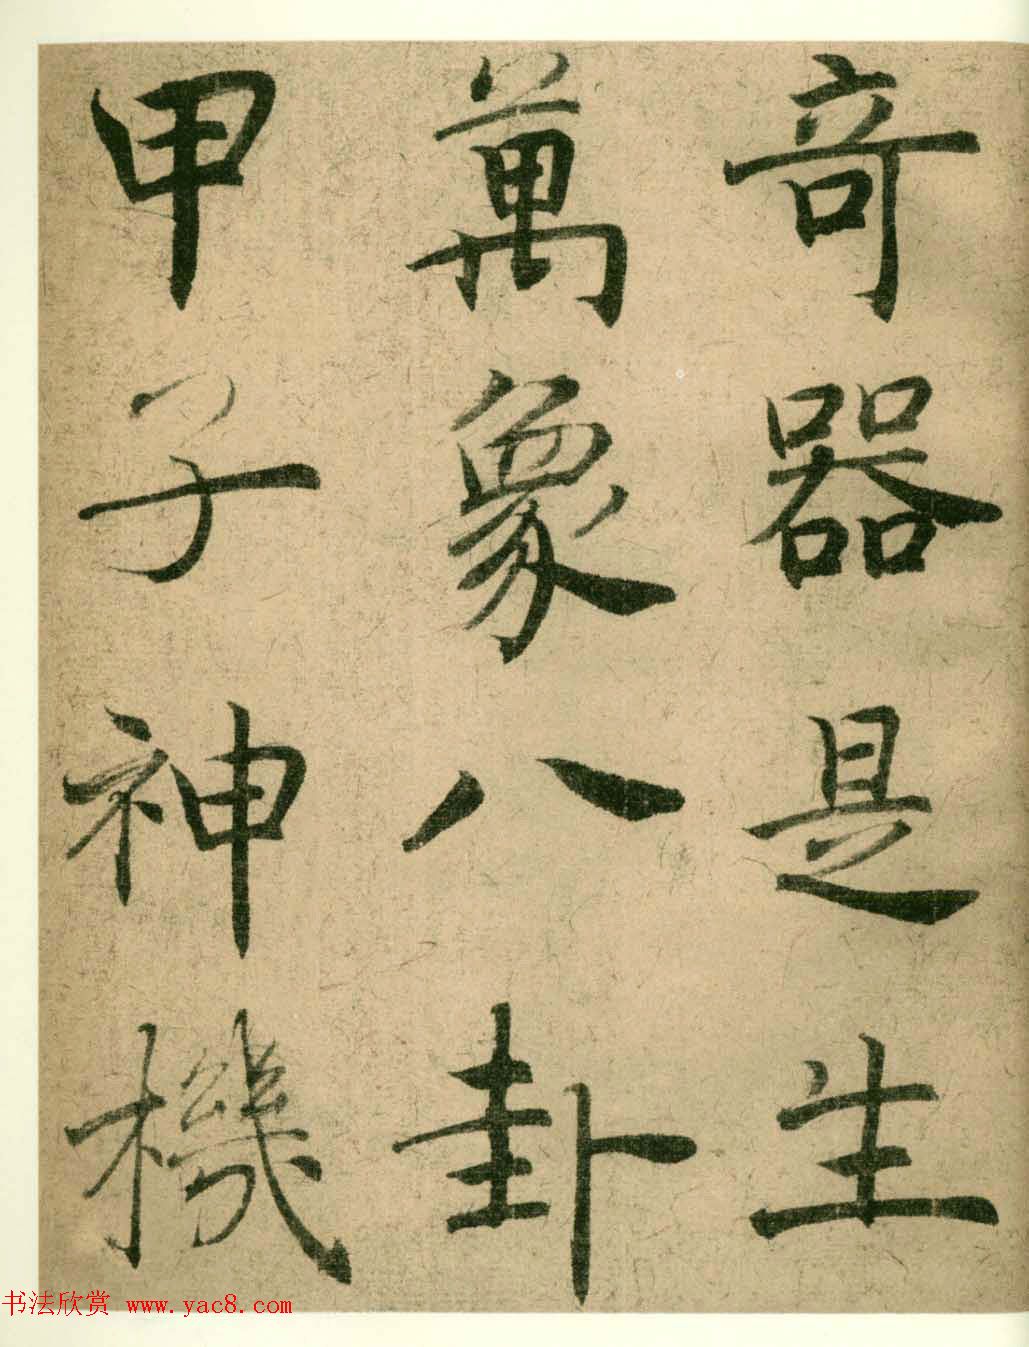 奇器是生
萬象八卦
甲子神機
书法欣赏 www.yac8.com